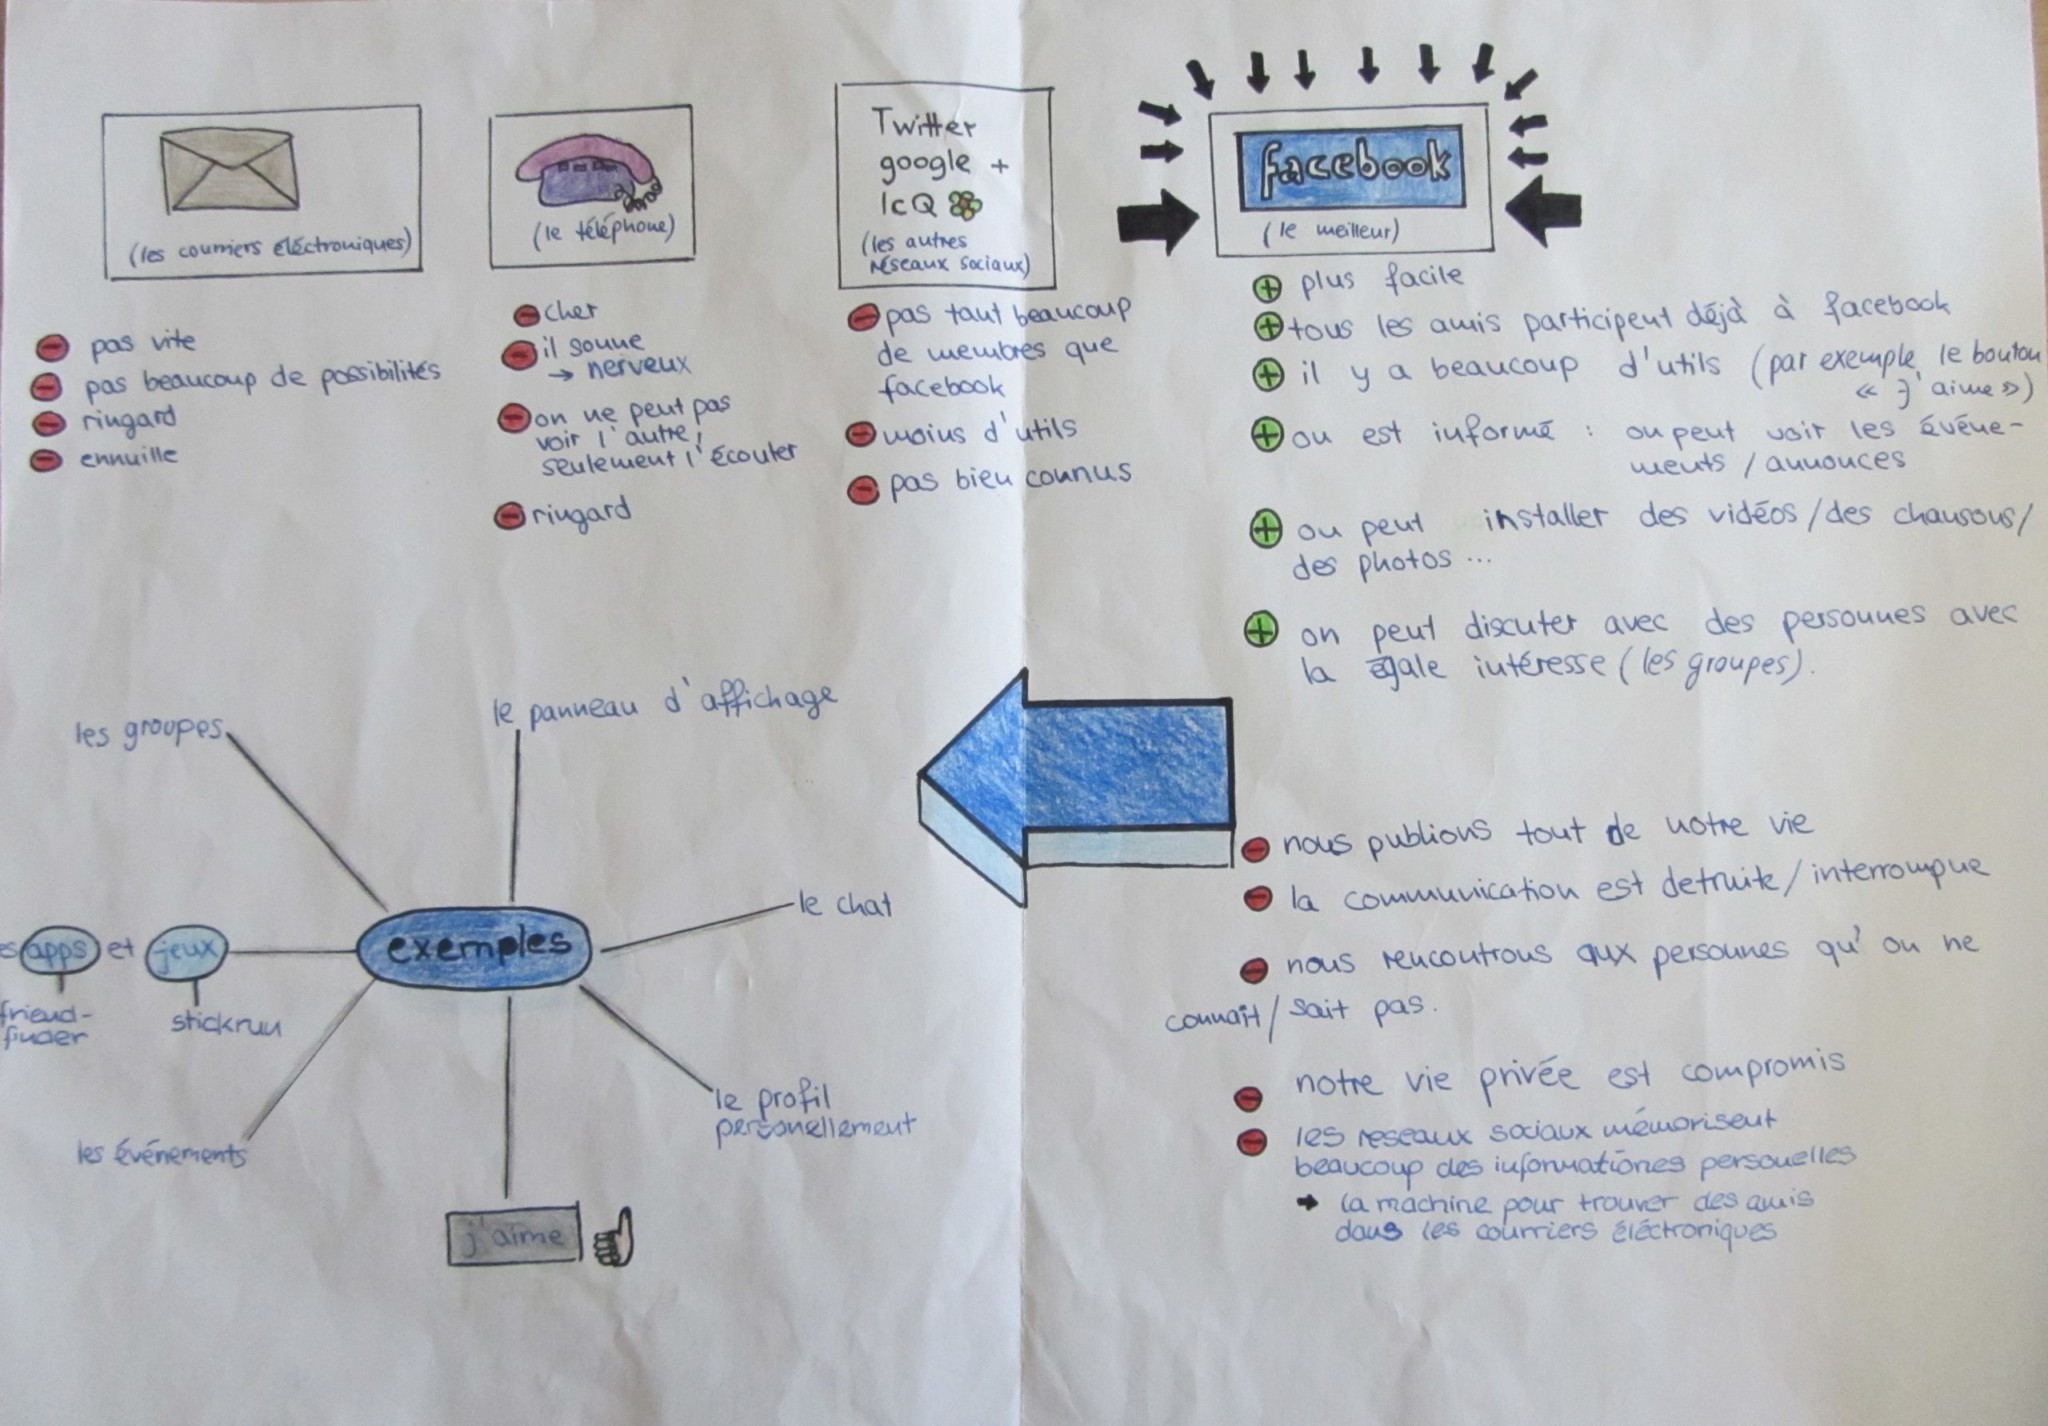 (les courriers éléctroniques)
pas vite
pas beaucoup de possibilités
ringard
ennuille
(le téléphone)
cher
il sonne
→ nerveux
on ne peut pas
voir l'autre,
seulement l'écouter
ringard
Twitter
google +
IcQ
(les autres
réseaux sociaux)
pas taut beaucoup
de membres que
facebook
moins d'utils
pas bien connus
facebook
(le meilleur)
plus facile
tous les amis participent déjà à facebook
il y a beaucoup d'utils (par exemple le bouton
« J'aime »)
on est informé : on peut voir les événe-
ments / annonces
on peut installer des vidéos / des chansons /
des photos ...
on peut discuter avec des personnes avec
la égale intéresse (les groupes).
nous publions tout de notre vie
la communication est detruite / interrompue
nous rencontrons aux personnes qu'on ne
connaît / sait pas.
notre vie privée est compromis
les reseaux sociaux mémorisent
beaucoup des informationes personelles
→ la machine pour trouver des amis
dans les courriers éléctroniques
exemples
les groupes
le panneau d'affichage
le chat
le profil
personellement
j'aime
les événements
es apps et jeux
friend-
finder
stickrun